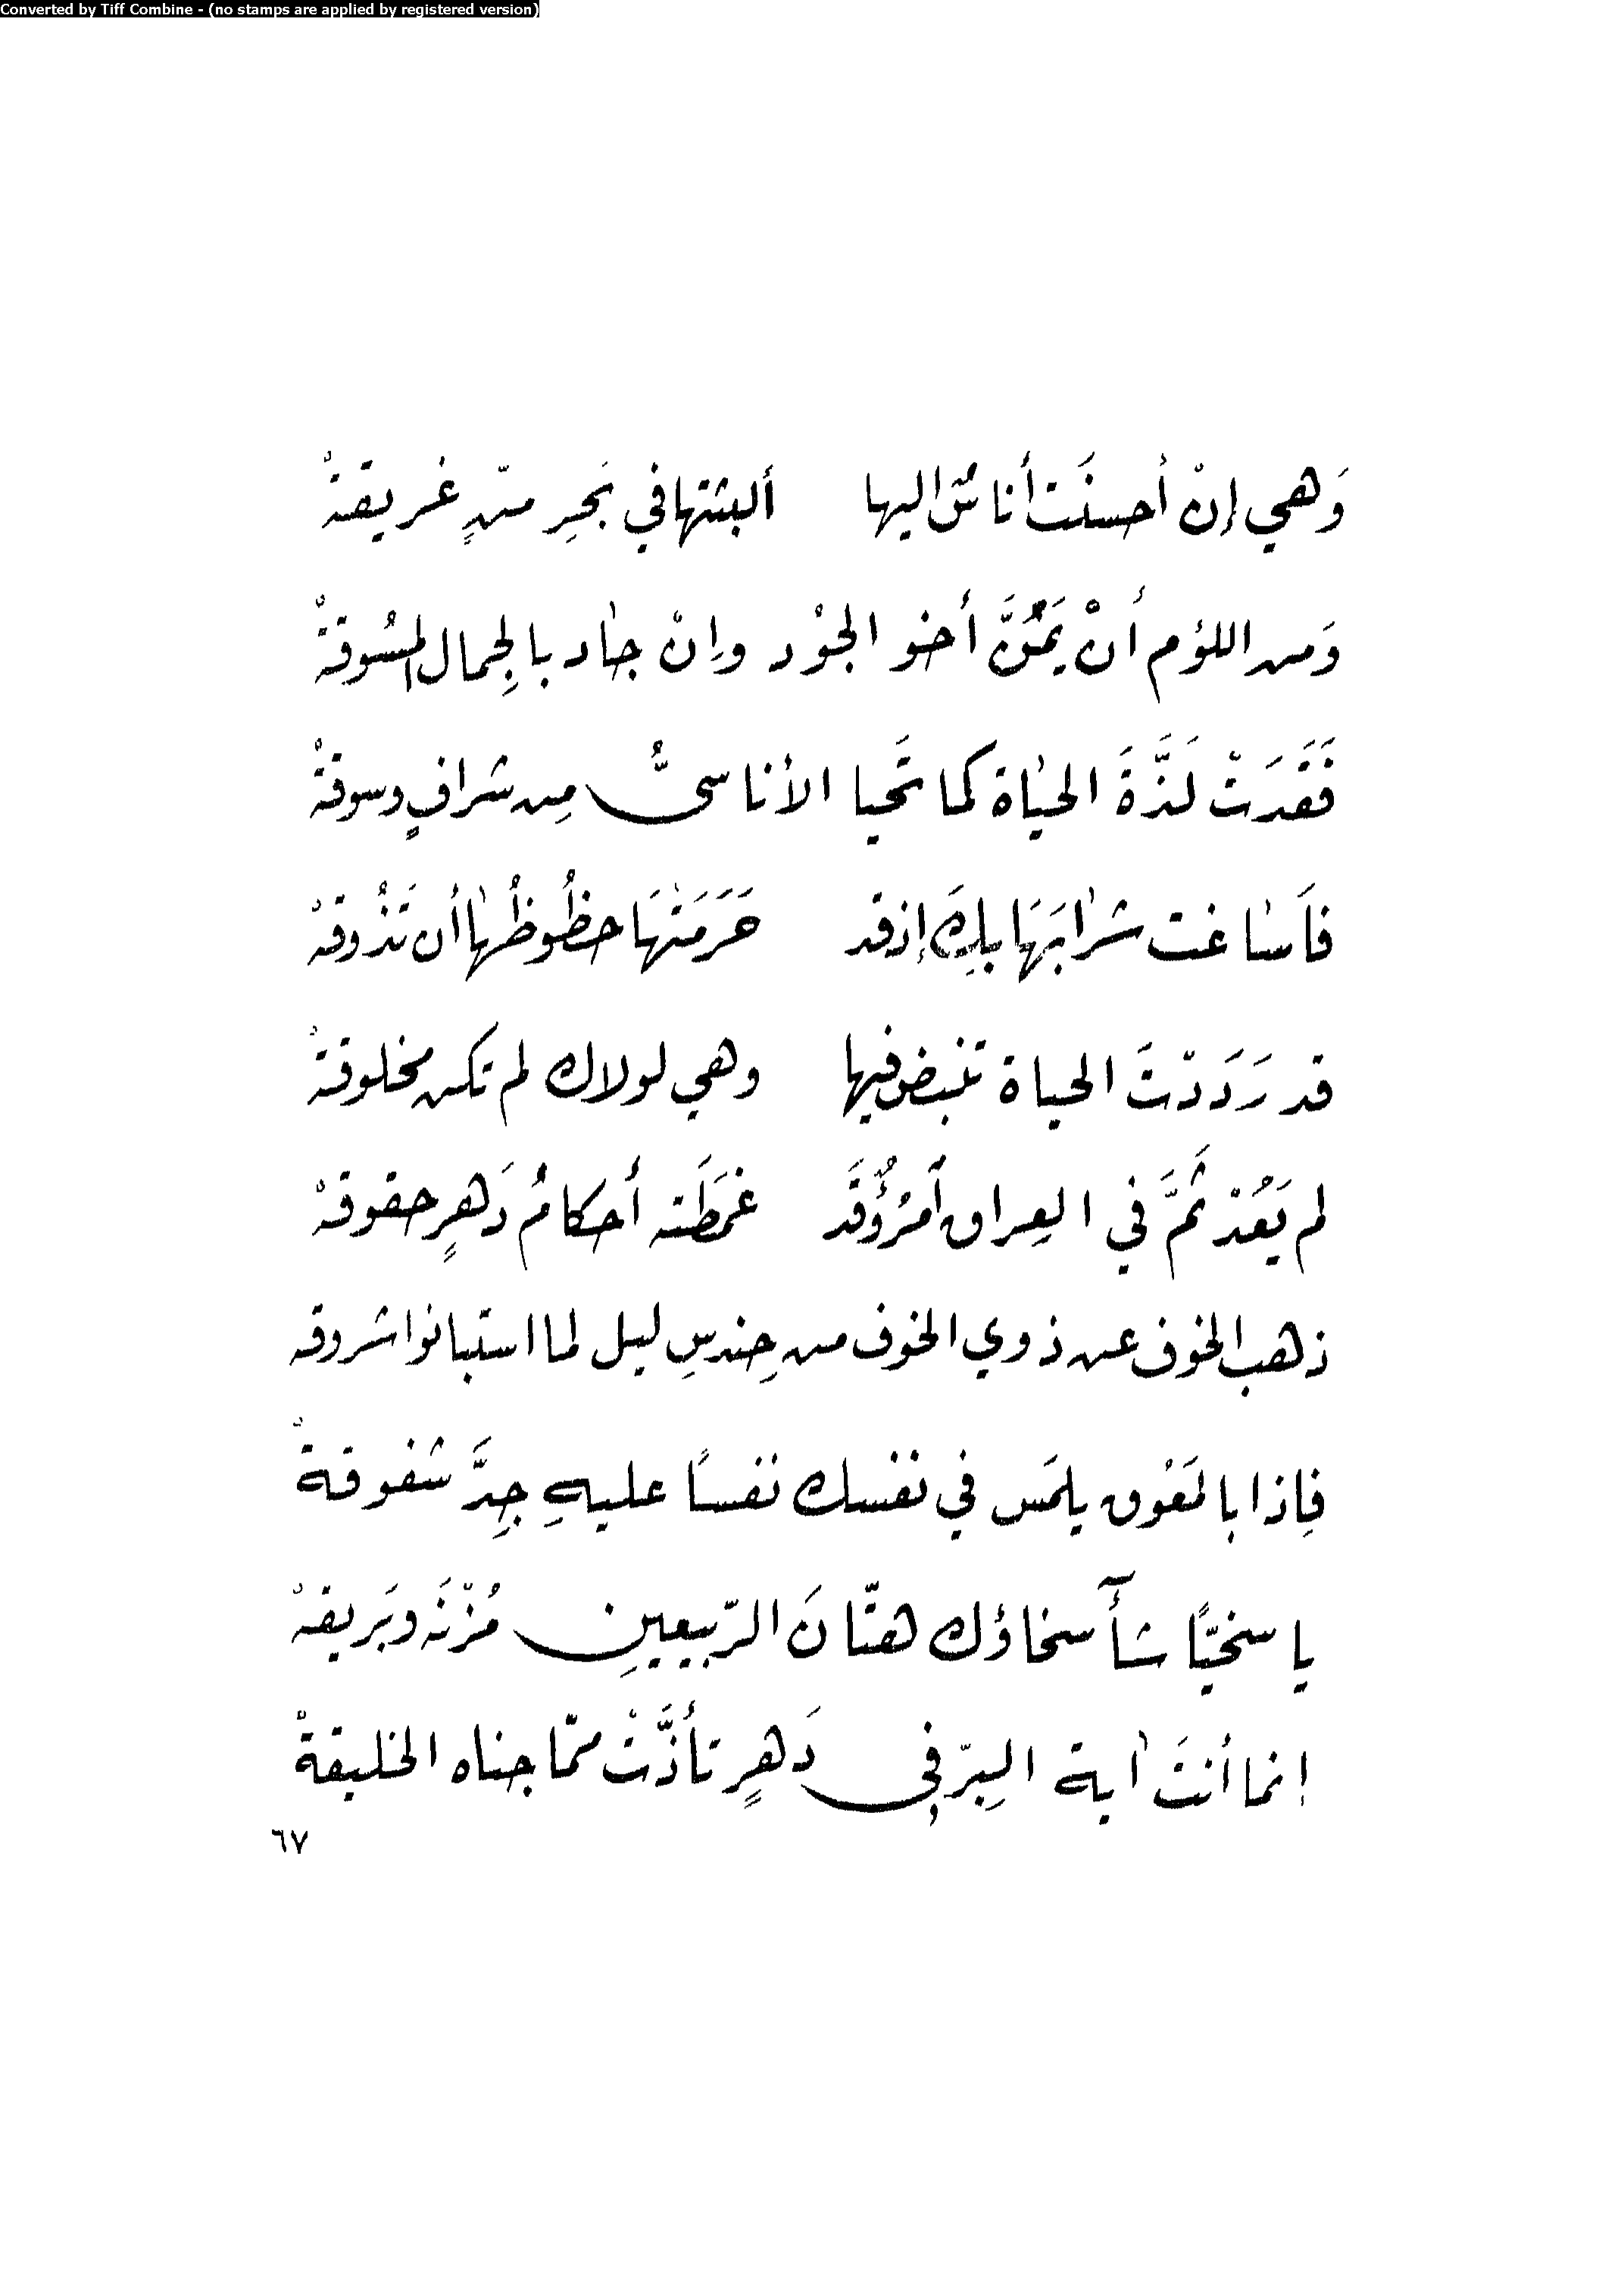 Converted by Tiff Combine - (no stamps are applied by registered version)
وَهي إنْ أحسنَت أناسٌ اليها ألبثتها في بَحرِ منّهٍ غريقةْ
وَمن اللؤم أنْ يَمُنَّ أخو الجوْد وإنْ جاد بالجِمال المسُوقةْ
فَقَدَتْ لَذَّةَ الحياة كما تَحيا الأناسيُّ مِن شرافٍ وسوقةْ
فأَساغت شرابَهَا بِكَ إذ قد حَرَمَتْهَا حظُوظُها أن تَذُوقهْ
قد رَدَدْتَ الحياة تنبض فيها وهي لولاك لم تكن مخلوقةْ
لم يَعُدْ ثَمَّ في العِراق أمرُؤٌ قَد غمَطَته أحكامُ دَهرٍ حقوقهْ
ذهب الخوف عن ذوي الخوف من حِندسِ ليل لما استبانوا شروقه
فاِذا بالمَعُوق يلمَس في نفسك نفسًا عليهِ جِدَّ شفوقةْ
يا سخيًّا شأآ سخاؤك هتّانَ الرّبيعينِ مُزْنَه وبَريقهْ
إنما أنتَ اية البِرّ في دَهرٍ تأذَّتْ ممّا جناه الخليقةْ
٦٧